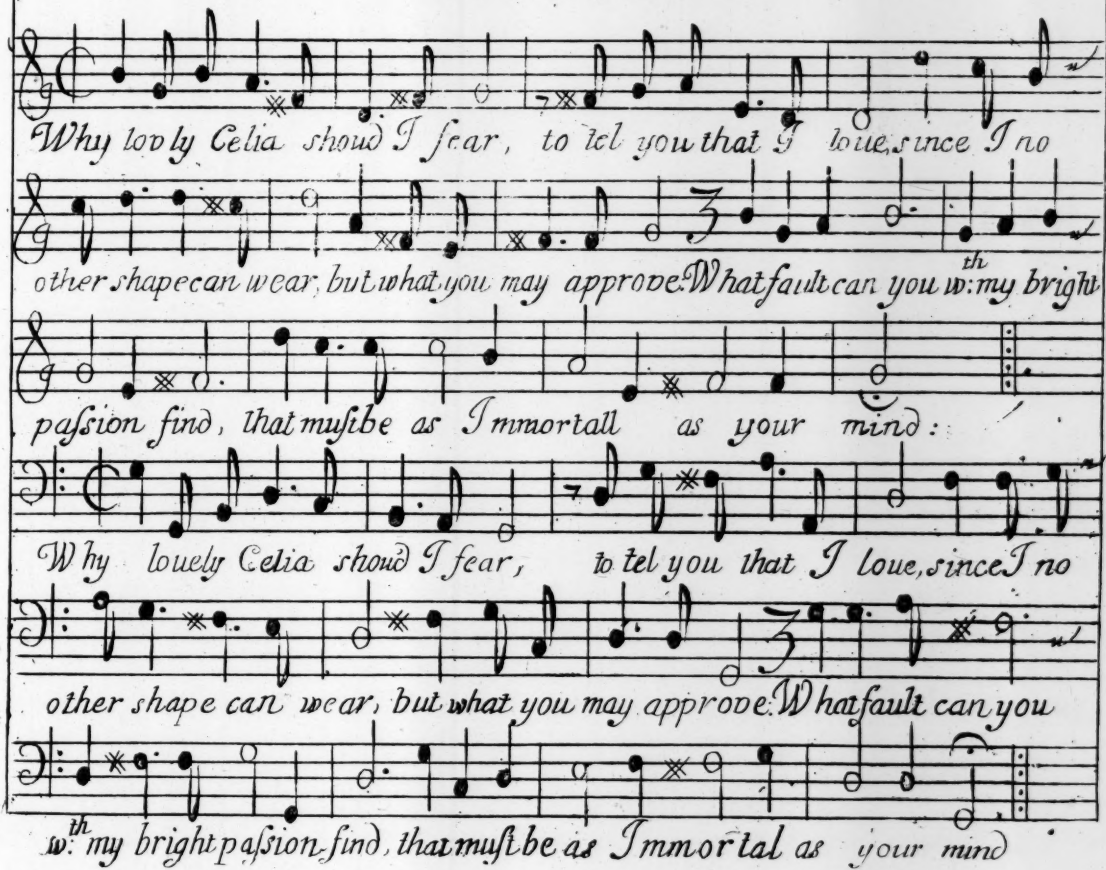 Why lovly Celia shoud I fear, to tel you that I loue, since I no
other shape can wear, but what you may approve: What fault can you w:th my bright
paſsion find, that muſt be as Immortall as your mind:
Why louely Celia shoud I fear, to tel you that I loue, since I no
other shape can wear, but what you may approve: What fault can you
w:th my bright paſsion find, that muſt be as Immortal as your mind